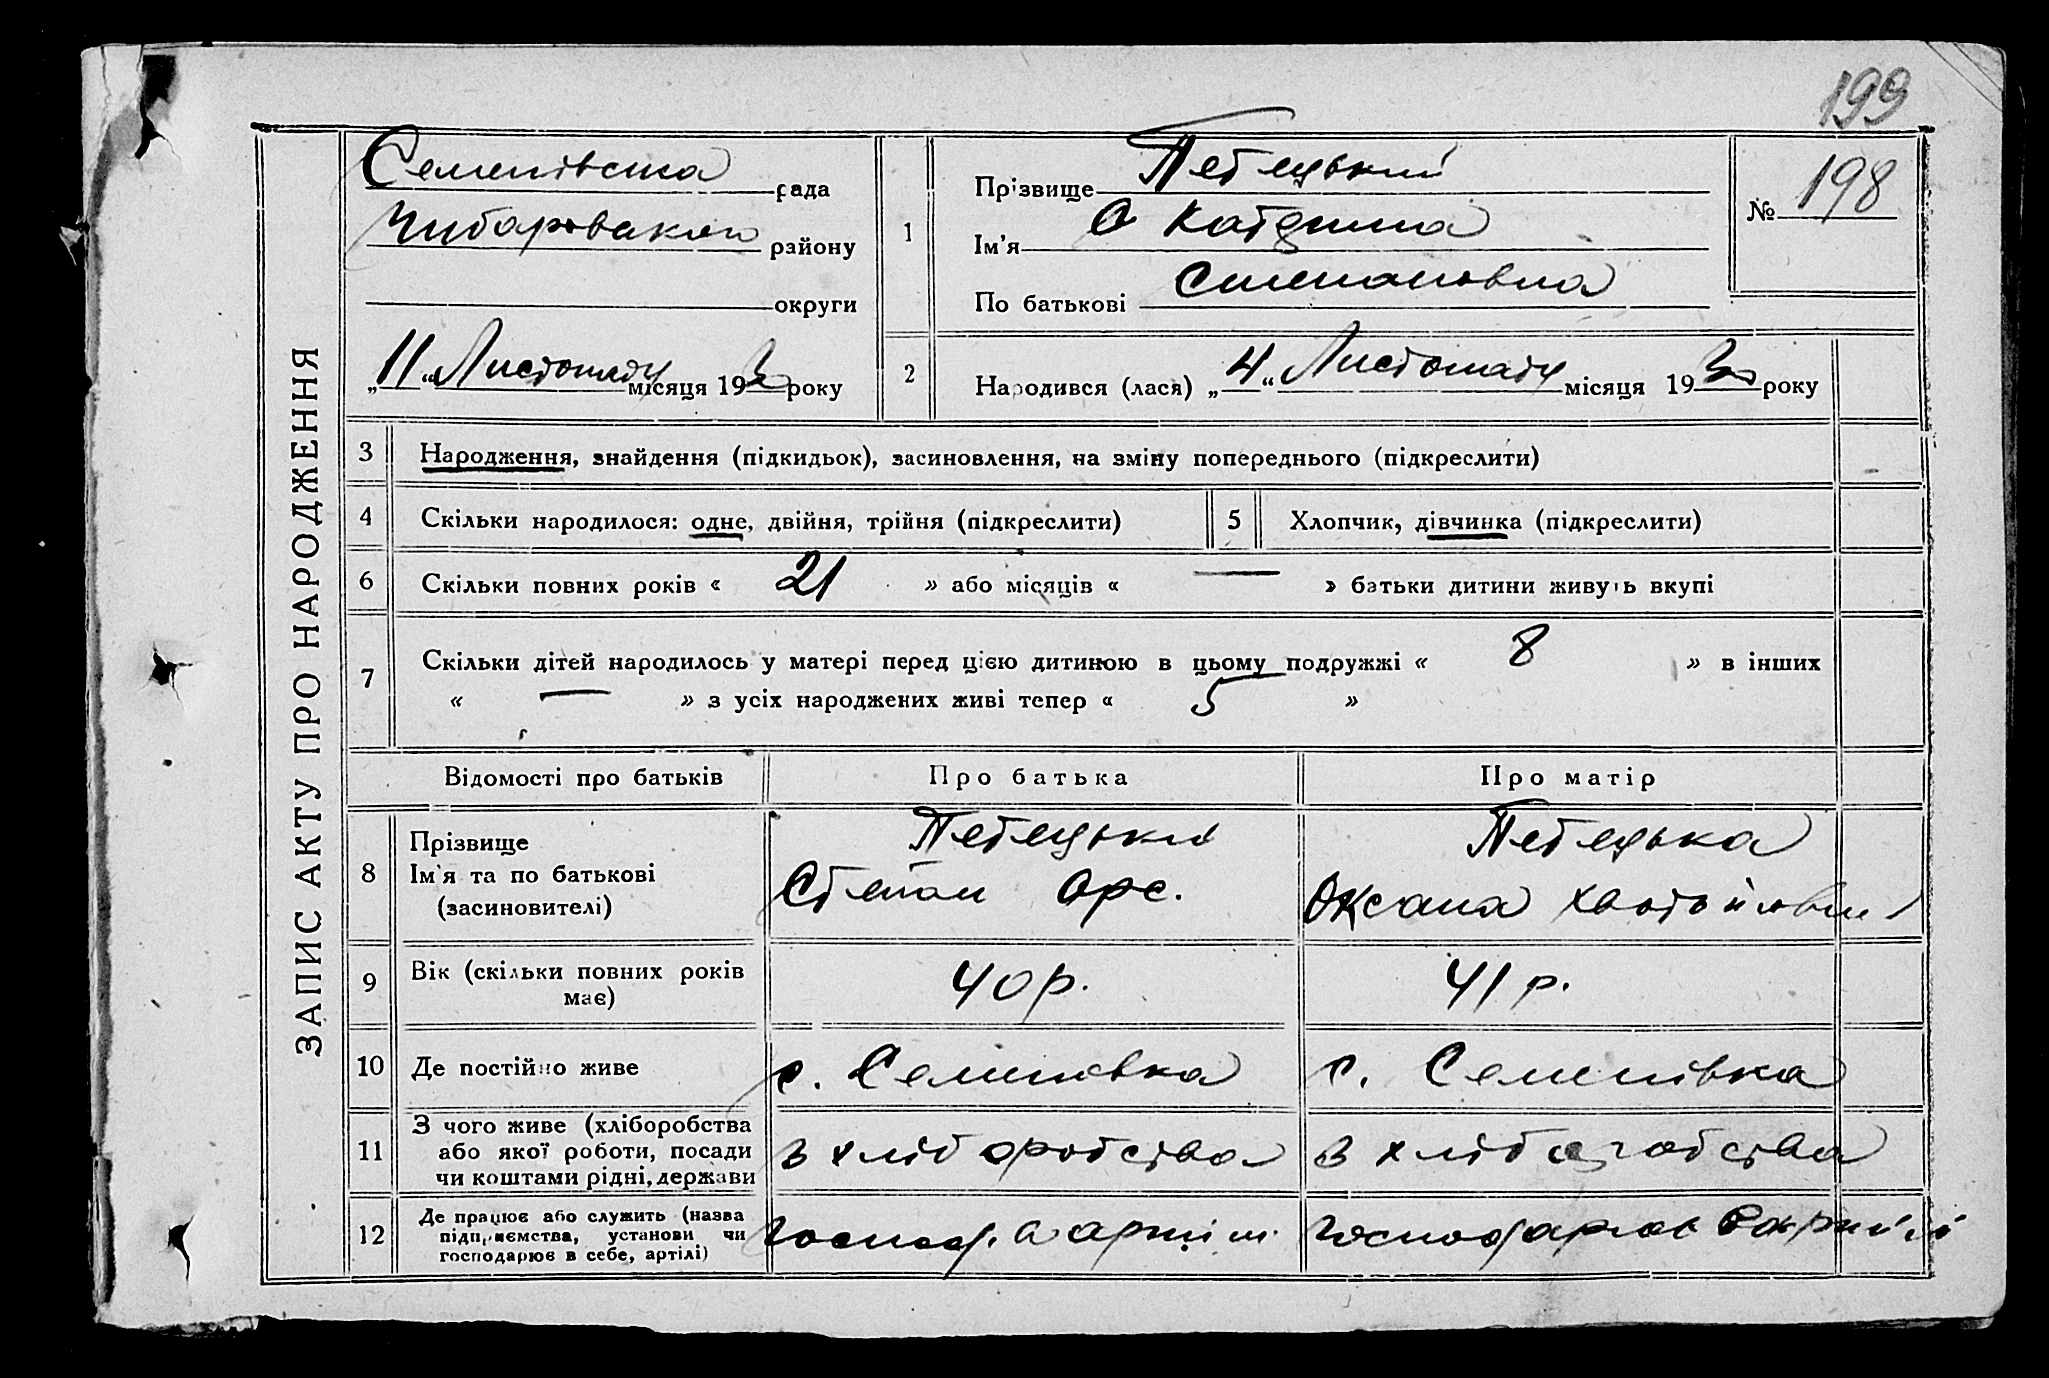 199
ЗАПИС АКТУ ПРО НАРОДЖЕННЯ
Семенівська рада
району
округи
„11“ Листопаду місяця 193 року
1
Прізвище
Ім'я Катерина
По батькові Степановна
№ 198
2 Народився (лася) „4“ Листопаду місяця 193 року
3 Народження, знайдення (підкидьок), засиновлення, на зміну попереднього (підкреслити)
4 Скільки народилося: одне, двійня, трійня (підкреслити) 5 Хлопчик, дівчинка (підкреслити)
6 Скільки повних років « 21 » або місяців « — » батьки дитини живуть вкупі
7 Скільки дітей народилось у матері перед цією дитиною в цьому подружжі « 8 » в інших
« — » з усіх народжених живі тепер « 5 »
Відомості про батьків Про батька Про матір
8 Прізвище
Ім'я та по батькові Степан Арс. Оксана
(засиновителі)
9 Вік (скільки повних років має) 40 р. 41 р.
10 Де постійно живе с. Семенівка с. Семенівка
11 З чого живе (хліборобства
або якої роботи, посади з хліборобства з хліборобства
чи коштами рідні, держави
12 Де працює або служить (назва
підприємства, установи чи господ. в артіли
господарює в себе, артілі)